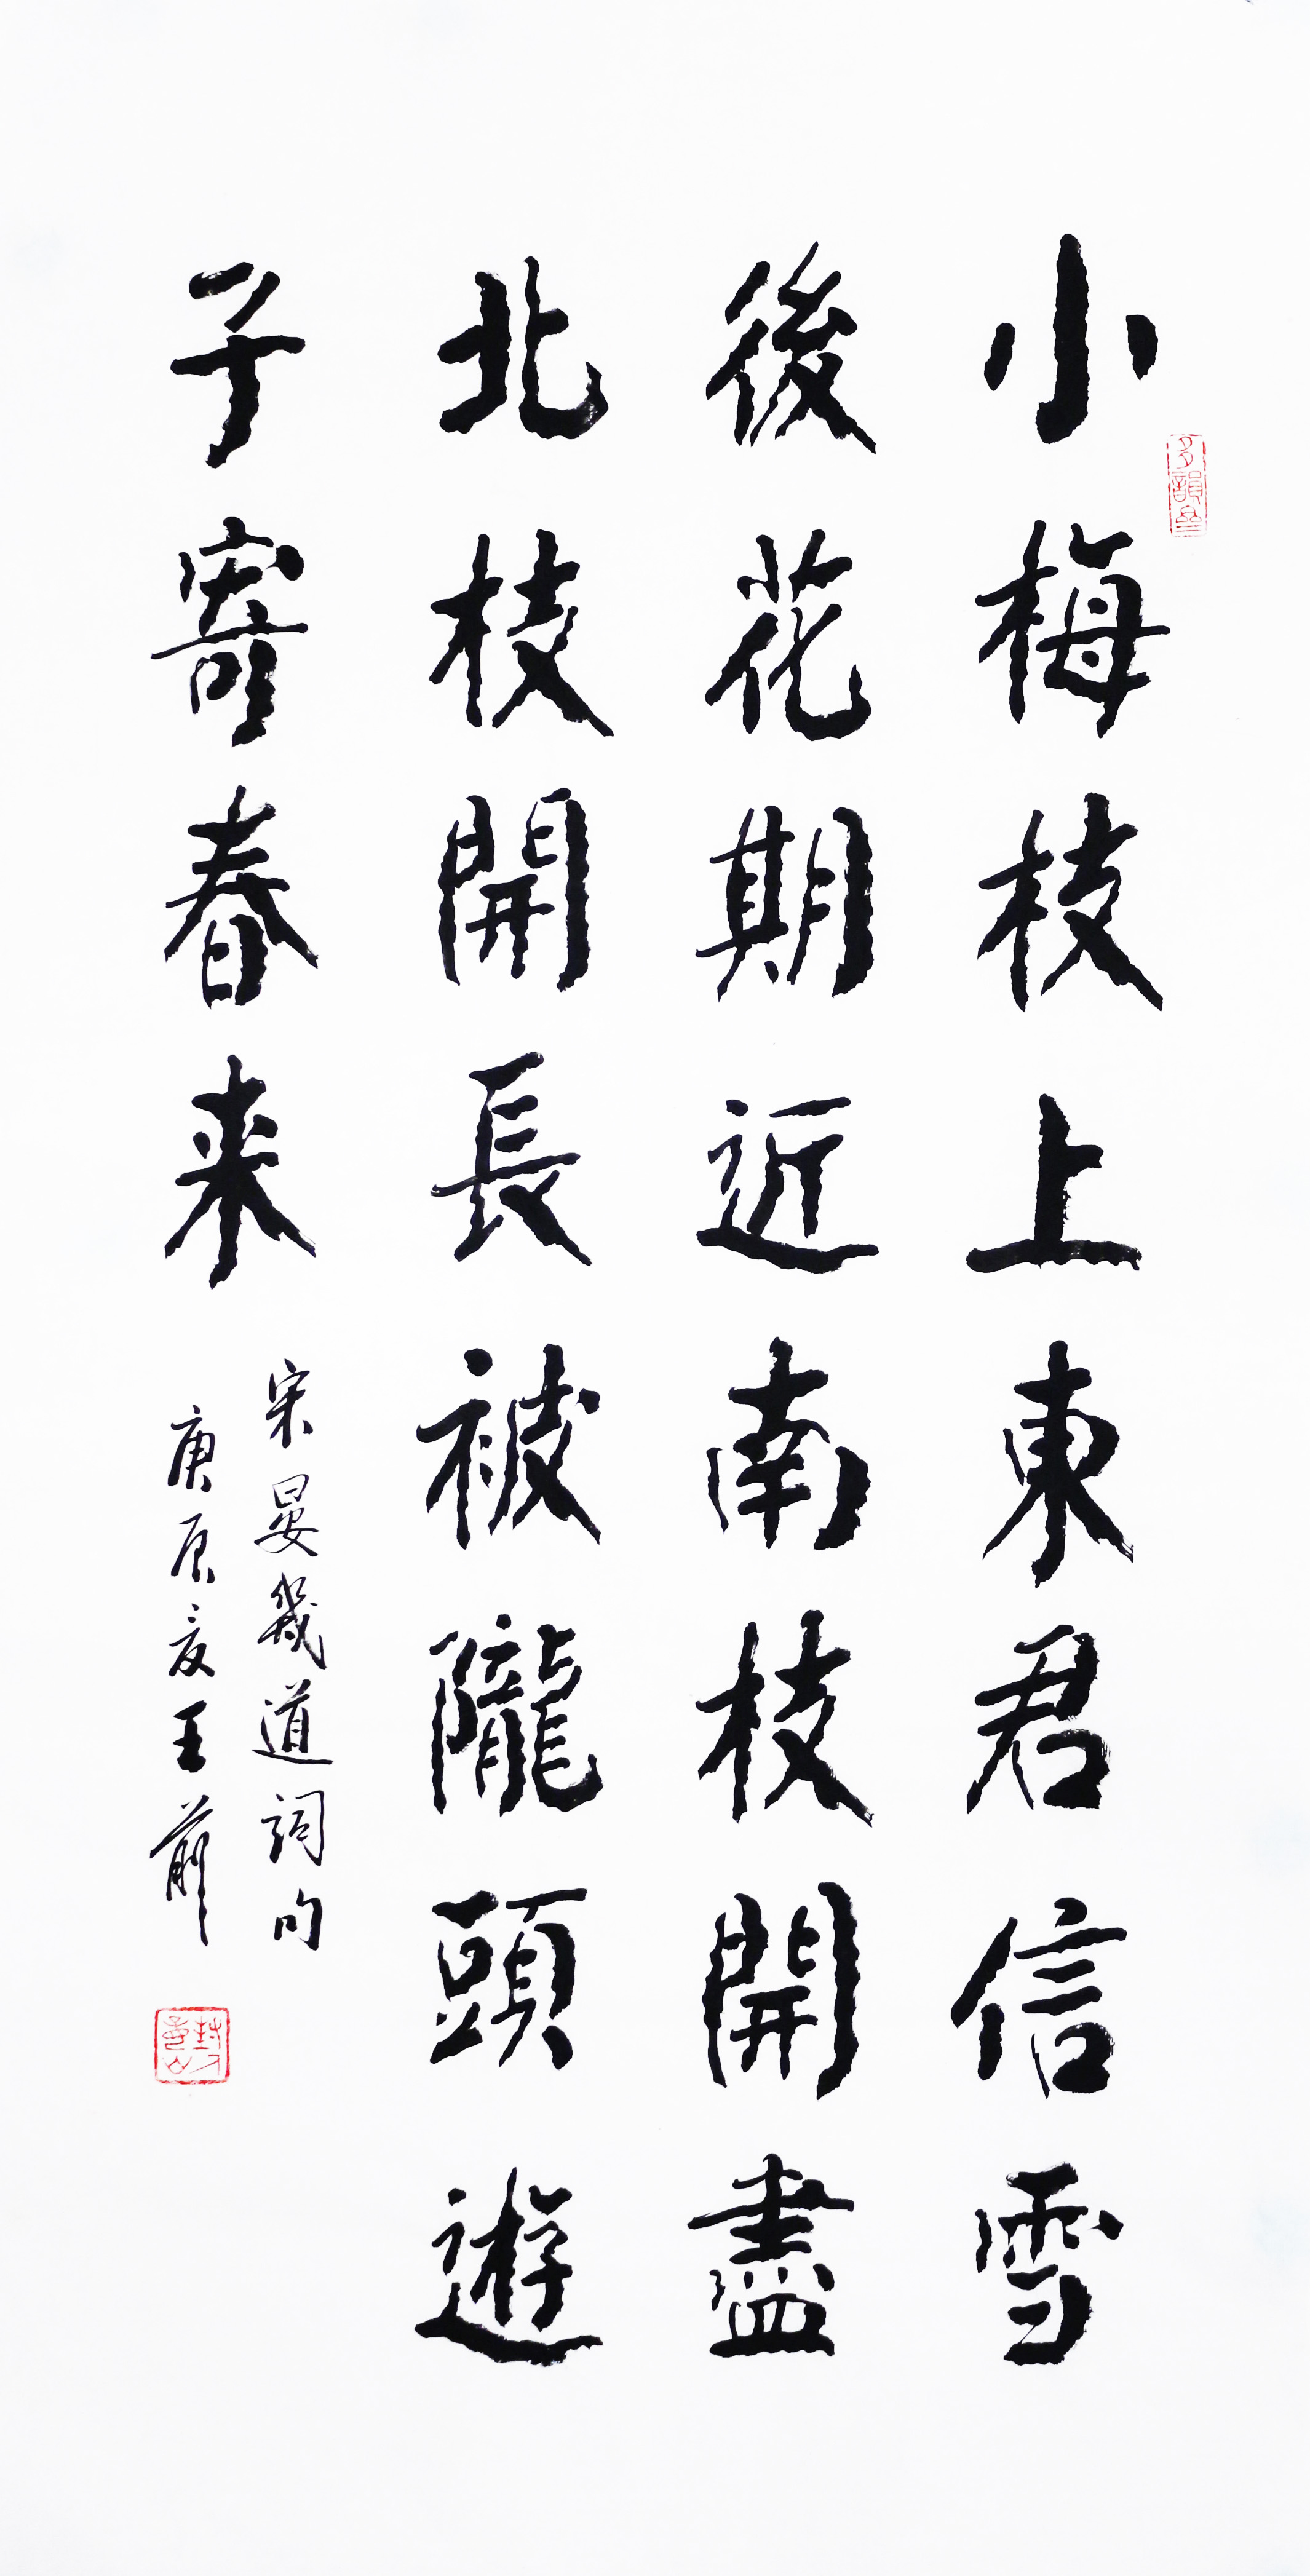 小梅枝上東君信雪
後花期近南枝開盡
北枝開長被隴頭遊
子寄春来
宋晏幾道詞句
庚辰夏王前